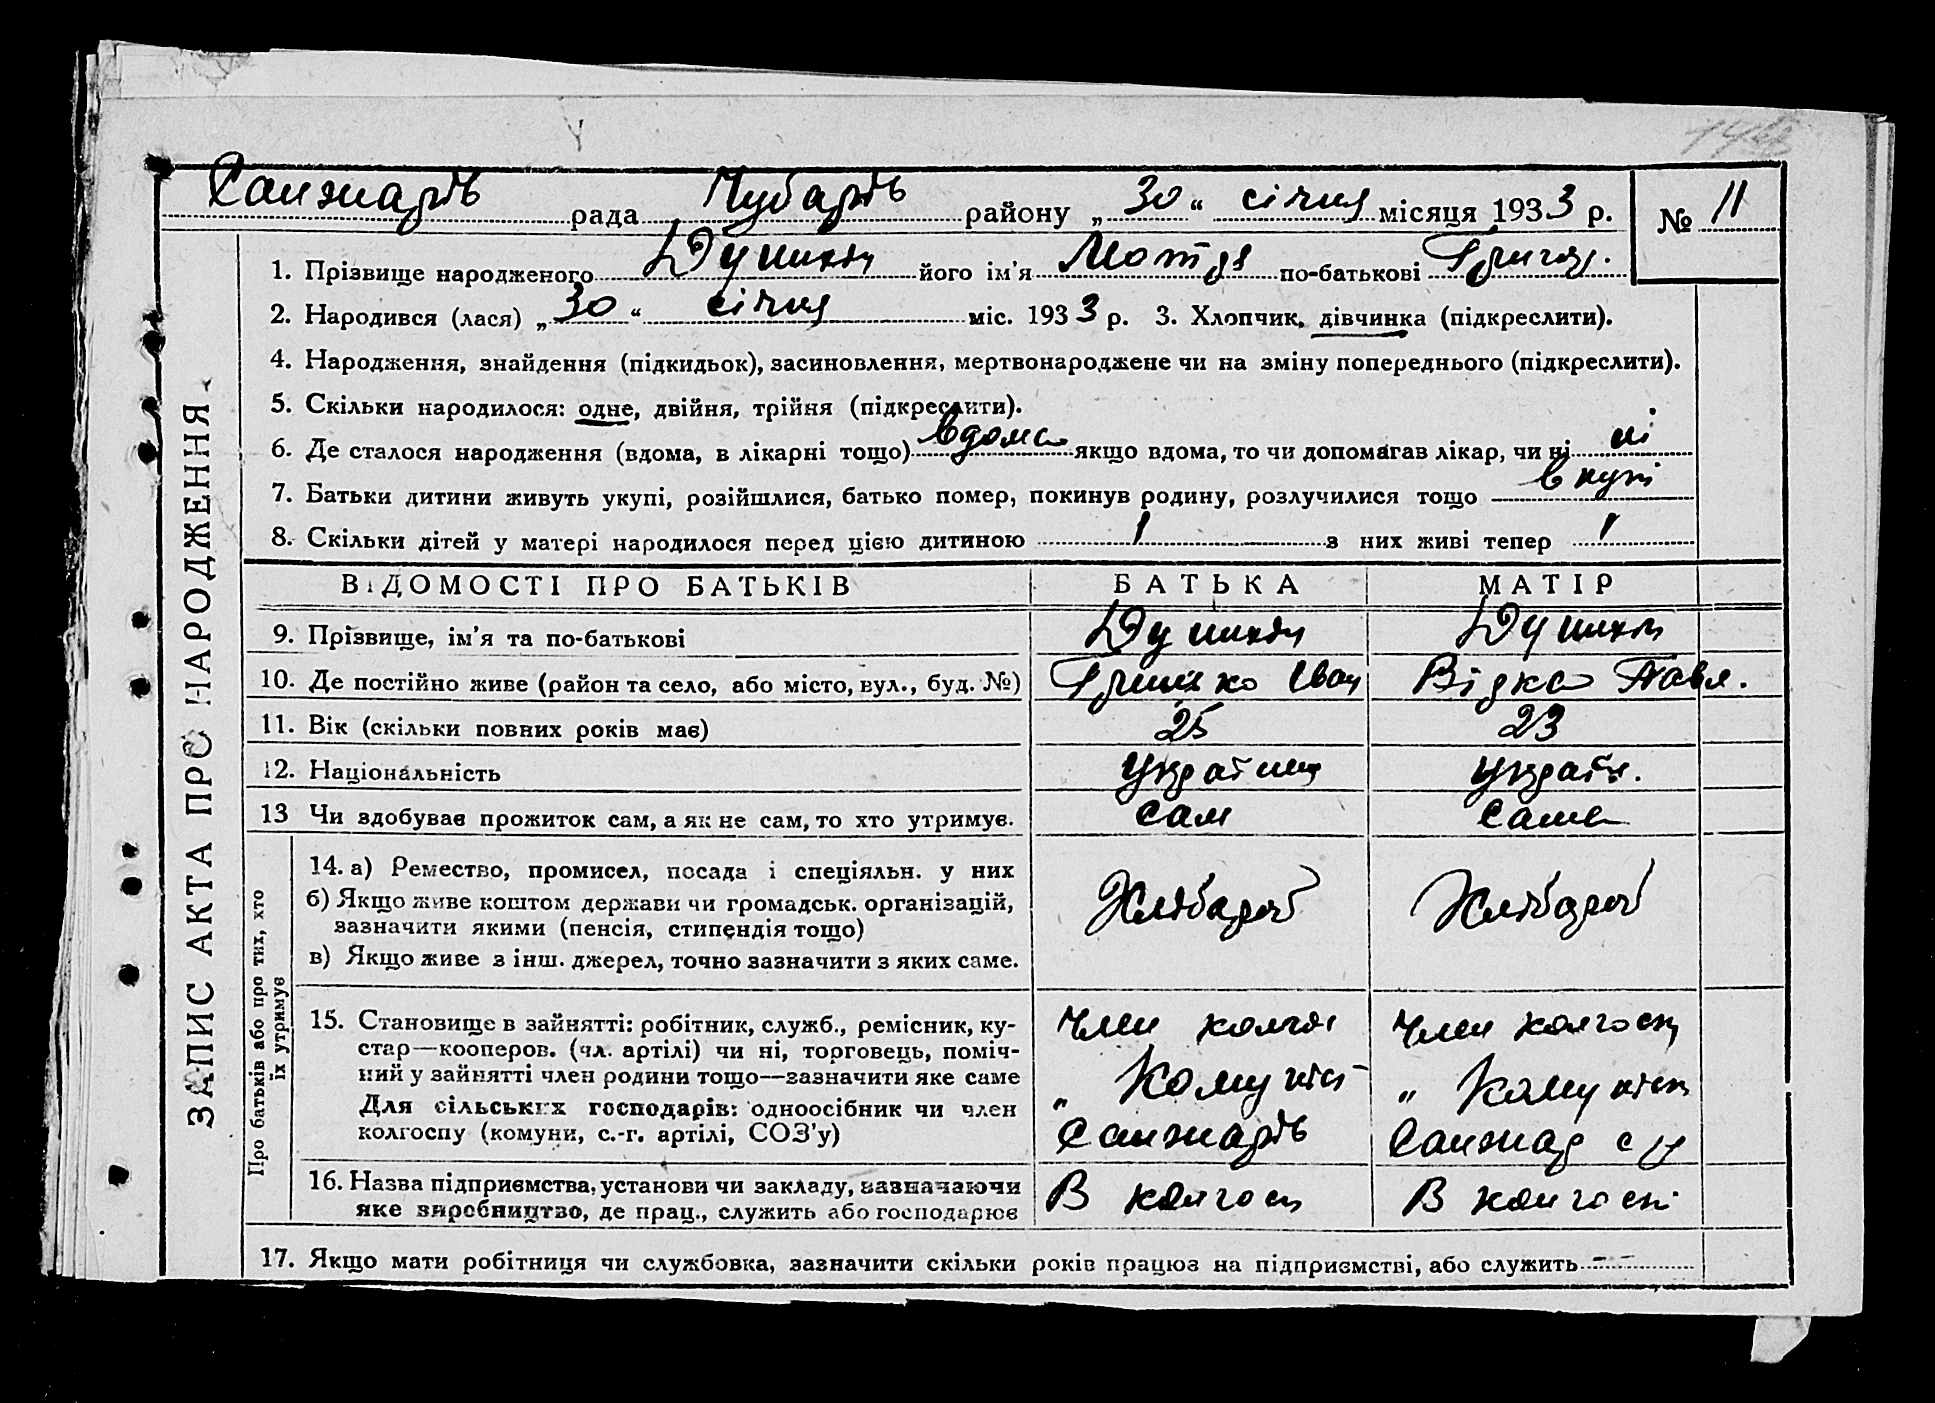 Санжарів рада Чубарів району „30“ січня місяця 1933 р. № 11
1. Прізвище народженого його ім'я Мотря по-батькові Григор.
2. Народився (лася) „30“ січня міс. 1933 р. 3. Хлопчик, дівчинка (підкреслити).
4. Народження, знайдення (підкидьок), засиновлення, мертвонароджене чи на зміну попереднього (підкреслити).
5. Скільки народилося: одне, двійня, трійня (підкреслити).
6. Де сталося народження (вдома, в лікарні тощо) вдома якщо вдома, то чи допомагав лікар, чи ні ні
7. Батьки дитини живуть укупі, розійшлися, батько помер, покинув родину, розлучилися тощо вкупі
8. Скільки дітей у матері народилося перед цією дитиною 1 з них живі тепер 1
ЗАПИС АКТА ПРО НАРОДЖЕННЯ
ВІДОМОСТІ ПРО БАТЬКІВ БАТЬКА МАТІР
9. Прізвище, ім'я та по-батькові
10. Де постійно живе (район та село, або місто, вул., буд. №) Іван Павл.
11. Вік (скільки повних років має) 25 23
12. Національність україн.
13 Чи здобуває прожиток сам, а як не сам, то хто утримує. сам сама
Про батьків або про тих, хто
їх утримує
14. а) Ремество, промисел, посада і спеціяльн. у них
б) Якщо живе коштом держави чи громадськ. організацій,
зазначити якими (пенсія, стипендія тощо)
Хлібороб Хлібороб
в) Якщо живе з інш. джерел, точно зазначити з яких саме.
15. Становище в зайнятті: робітник, служб., ремісник, ку-
стар—кооперов. (чл. артілі) чи ні, торговець, поміч-
ний у зайнятті член родини тощо—зазначити яке саме
Для сільських господарів: одноосібник чи член
колгоспу (комуни, с.-г. артілі, СОЗ'у)
член член колгосп
„ „
Санжарів Санжар
16. Назва підприємства, установи чи закладу, зазначаючи
яке виробництво, де прац., служить або господарює
В колгосп В колгоспі
17. Якщо мати робітниця чи службовка, зазначити скільки років працює на підприємстві, або служить —